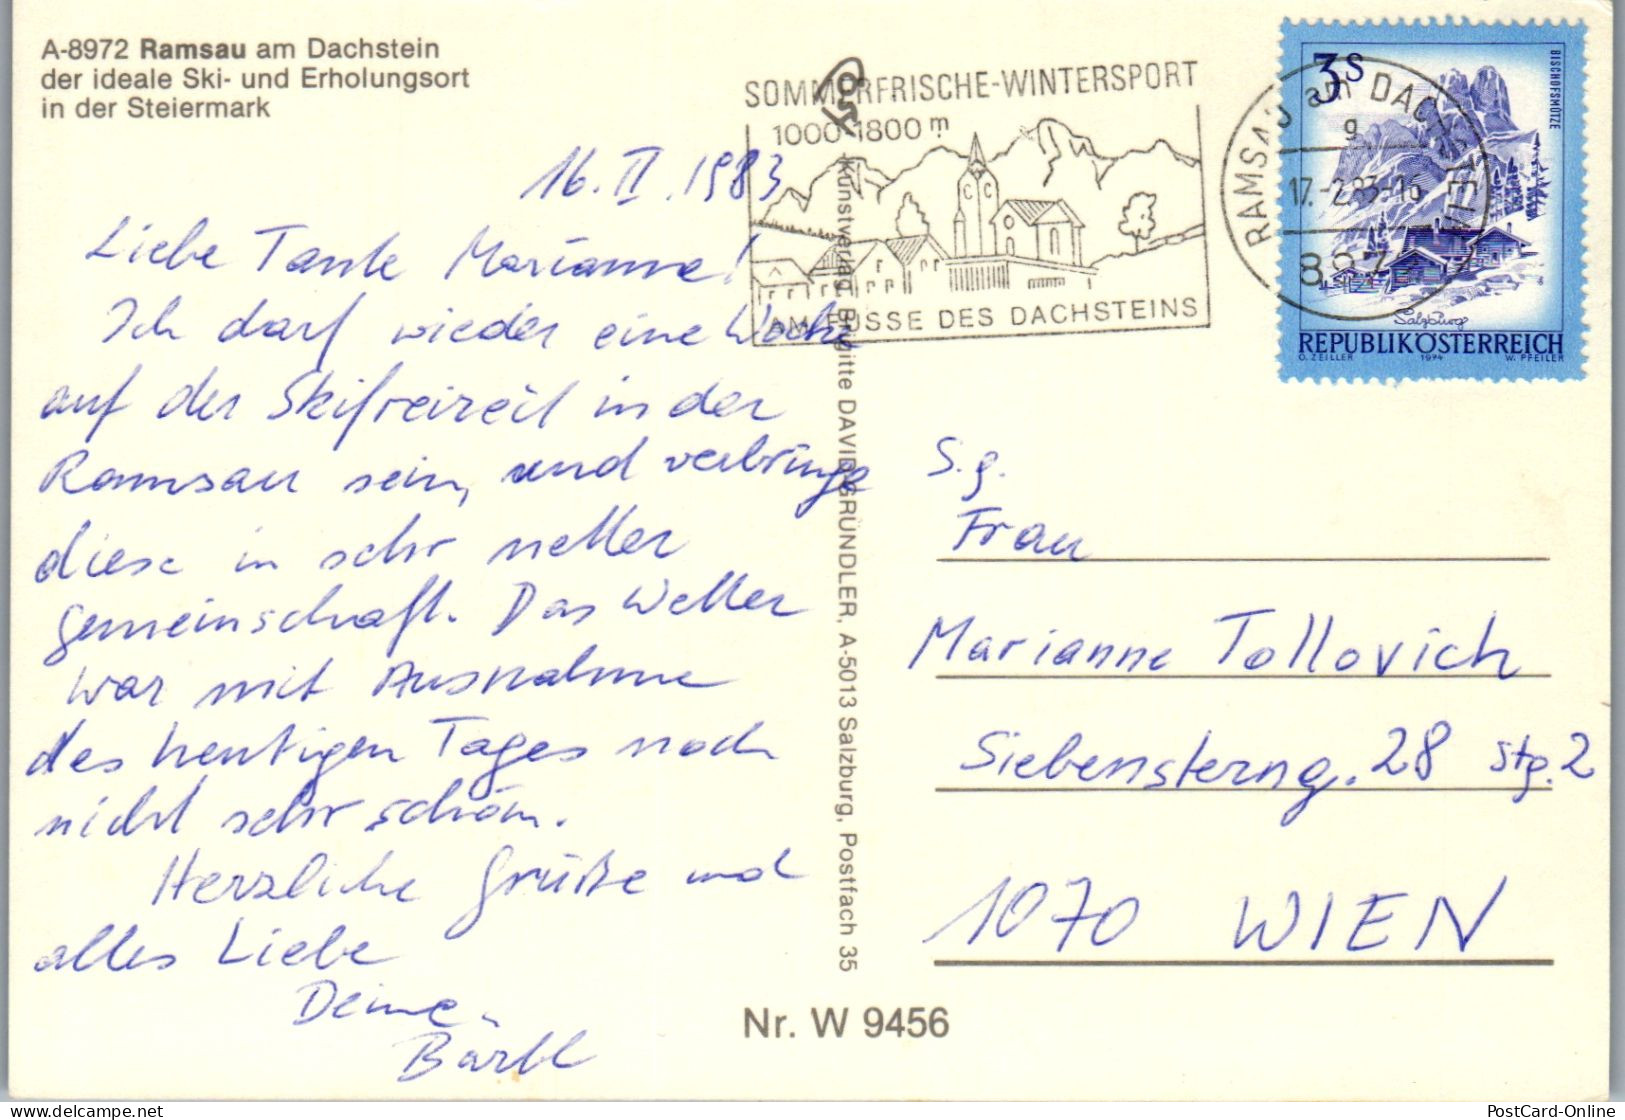 A-8972 Ramsau am Dachstein
der ideale Ski- und Erholungsort
in der Steiermark
16. II. 1983
Liebe Tante Marianne!
Ich darf wieder eine Woche
auf der Skifreizeit in der
Ramsau sein, und verbringe
diese in sehr netter
gemeinschaft. Das Wetter
war mit Ausnahme
des heutigen Tages noch
nicht sehr schön.
Herzliche Grüße und
alles Liebe
Deine
Bärbl
Kunstverlag Brigitte DAVID-GRÜNDLER, A-5013 Salzburg, Postfach 35
Nr. W 9456
SOMMERFRISCHE-WINTERSPORT
1000-1800 m
AM FUSSE DES DACHSTEINS
RAMSAU am DACHSTEIN
g
17.-2.83-16
8972
3S
BISCHOFSMÜTZE
Salzburg
REPUBLIK ÖSTERREICH
O. ZEILLER 1974 W. PFEILER
S.g.
Frau
Marianne Tollovich
Siebensterng. 28 Stg. 2
1070 WIEN
PostCard-Online
delcampe.net